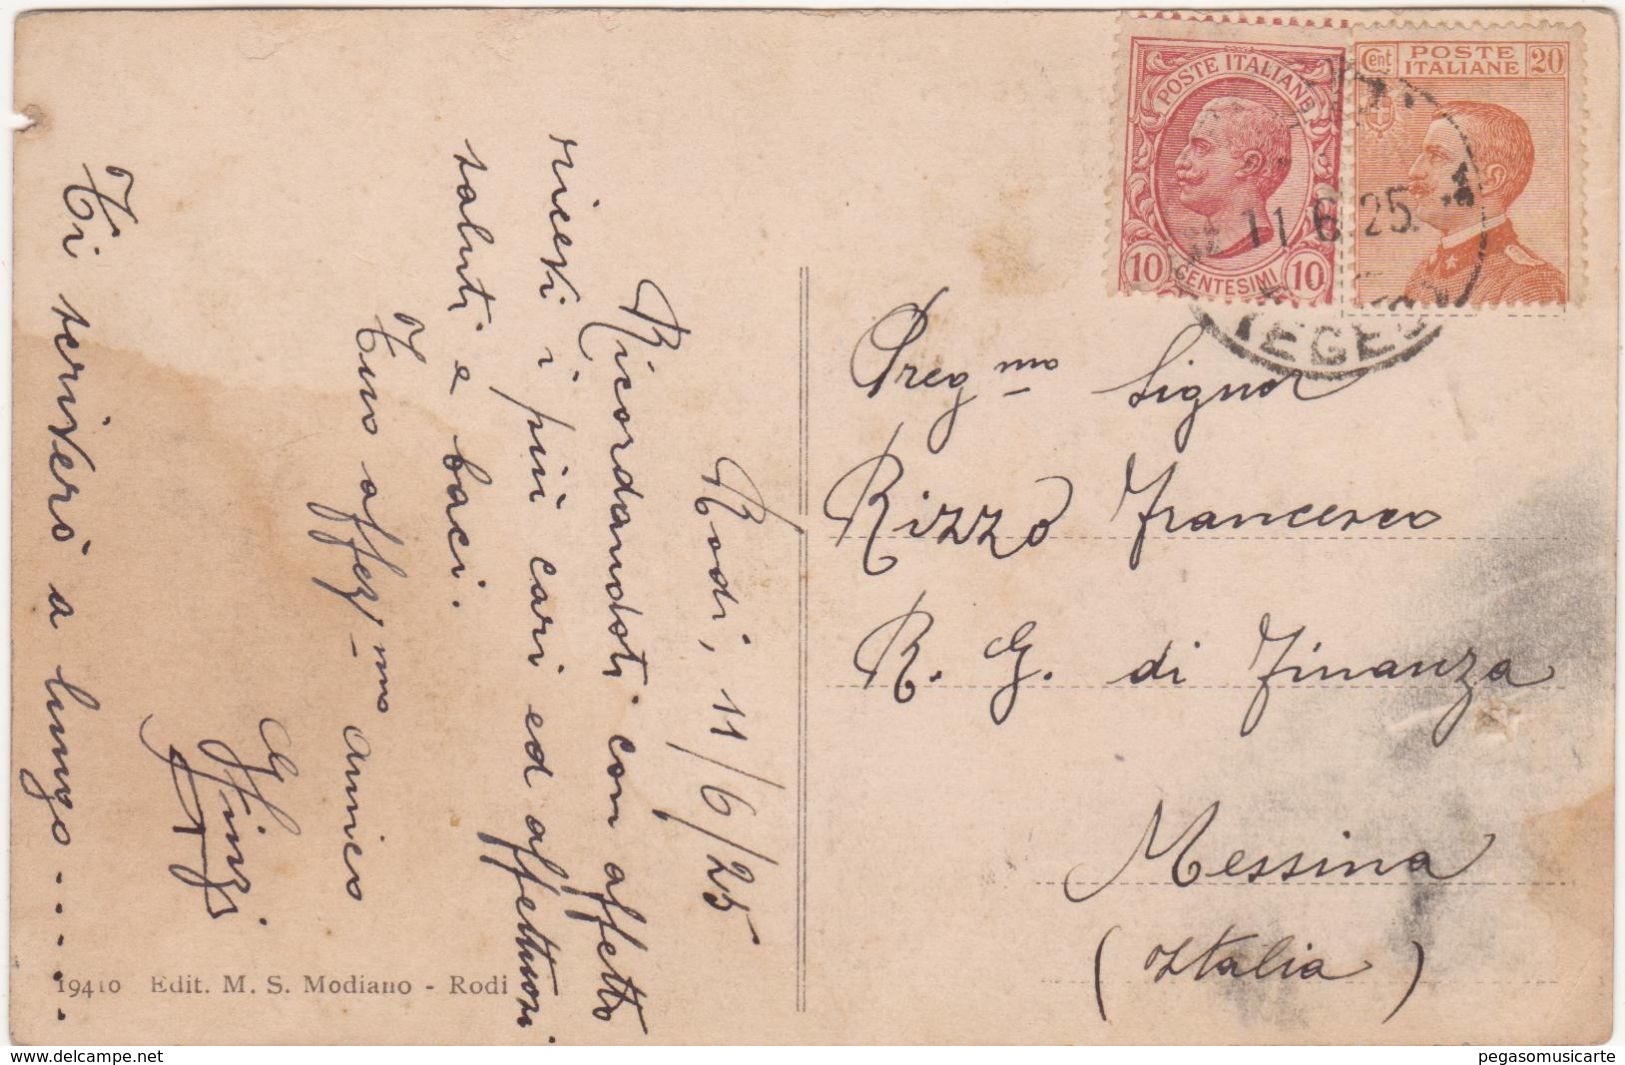 Rodi, 11/6/25
Ricordandoti con affetto
ricevi i più cari ed affettuosi
saluti e baci.
Tuo affez/mo amico
Ti scriverò a lungo.....
19410 Edit. M. S. Modiano - Rodi
POSTE ITALIANE
10 CENTESIMI 10
Cent POSTE ITALIANE 20
11 6 25
EGEO
Preg mo Signor
Rizzo Francesco
R. G. di Finanza
Messina
(Italia)
www.delcampe.net
pegasomusicarte